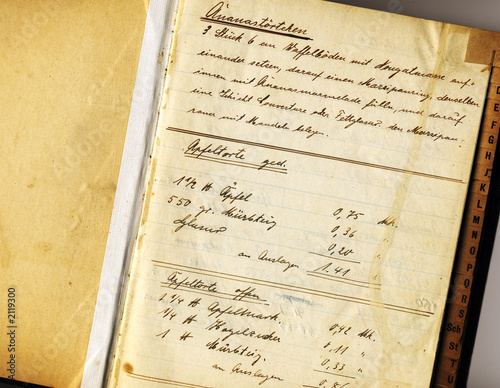 Ananastörtchen
3 Stück 6 cm Waffelböden mit Nougatmasse auf-
einander setzen, darauf einen Marzipanring, denselben
innen mit Ananasmarmelade füllen, und darauf
eine Schicht Couverture oder Fettglasur den Marzipan-
rand mit Mandeln belegen.
Apfeltorte ged.
1 1/2 ℔ Äpfel 0,75 Mk.
550 gr. Mürbteig 0,36 "
Glasur 0,20 "
an Auslagen 1.41 "
Apfeltorte offen
1 1/4 ℔ Apfelmark. 0,42 Mk.
1/4 ℔ Hagelzucker 0,11 "
1 ℔ Mürbteig. 0,33 "
an Auslagen
D
E
F
G
H
J
K
L
M
N
O
P
Q
R
S
Sch
St
T
U
Adobe Stock | #2119300